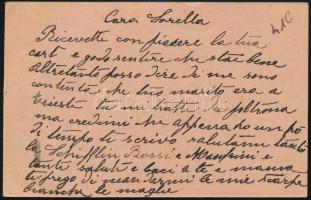 Cara Sorella
Ricevetti con piacere la tua
cart e godo sentire che stai bene
Altretanto posso dire di me sono
contenta che tuo marito era a
Trieste tu mi tratti da poltrona
ma credimi che appena ho un pò
di tempo ti scrivo, salutami tanto
la Schifflin Bossi e
tanti saluti e baci a te e mamma
ti prego di mandarmi le mie scarpe
bianche le maglie